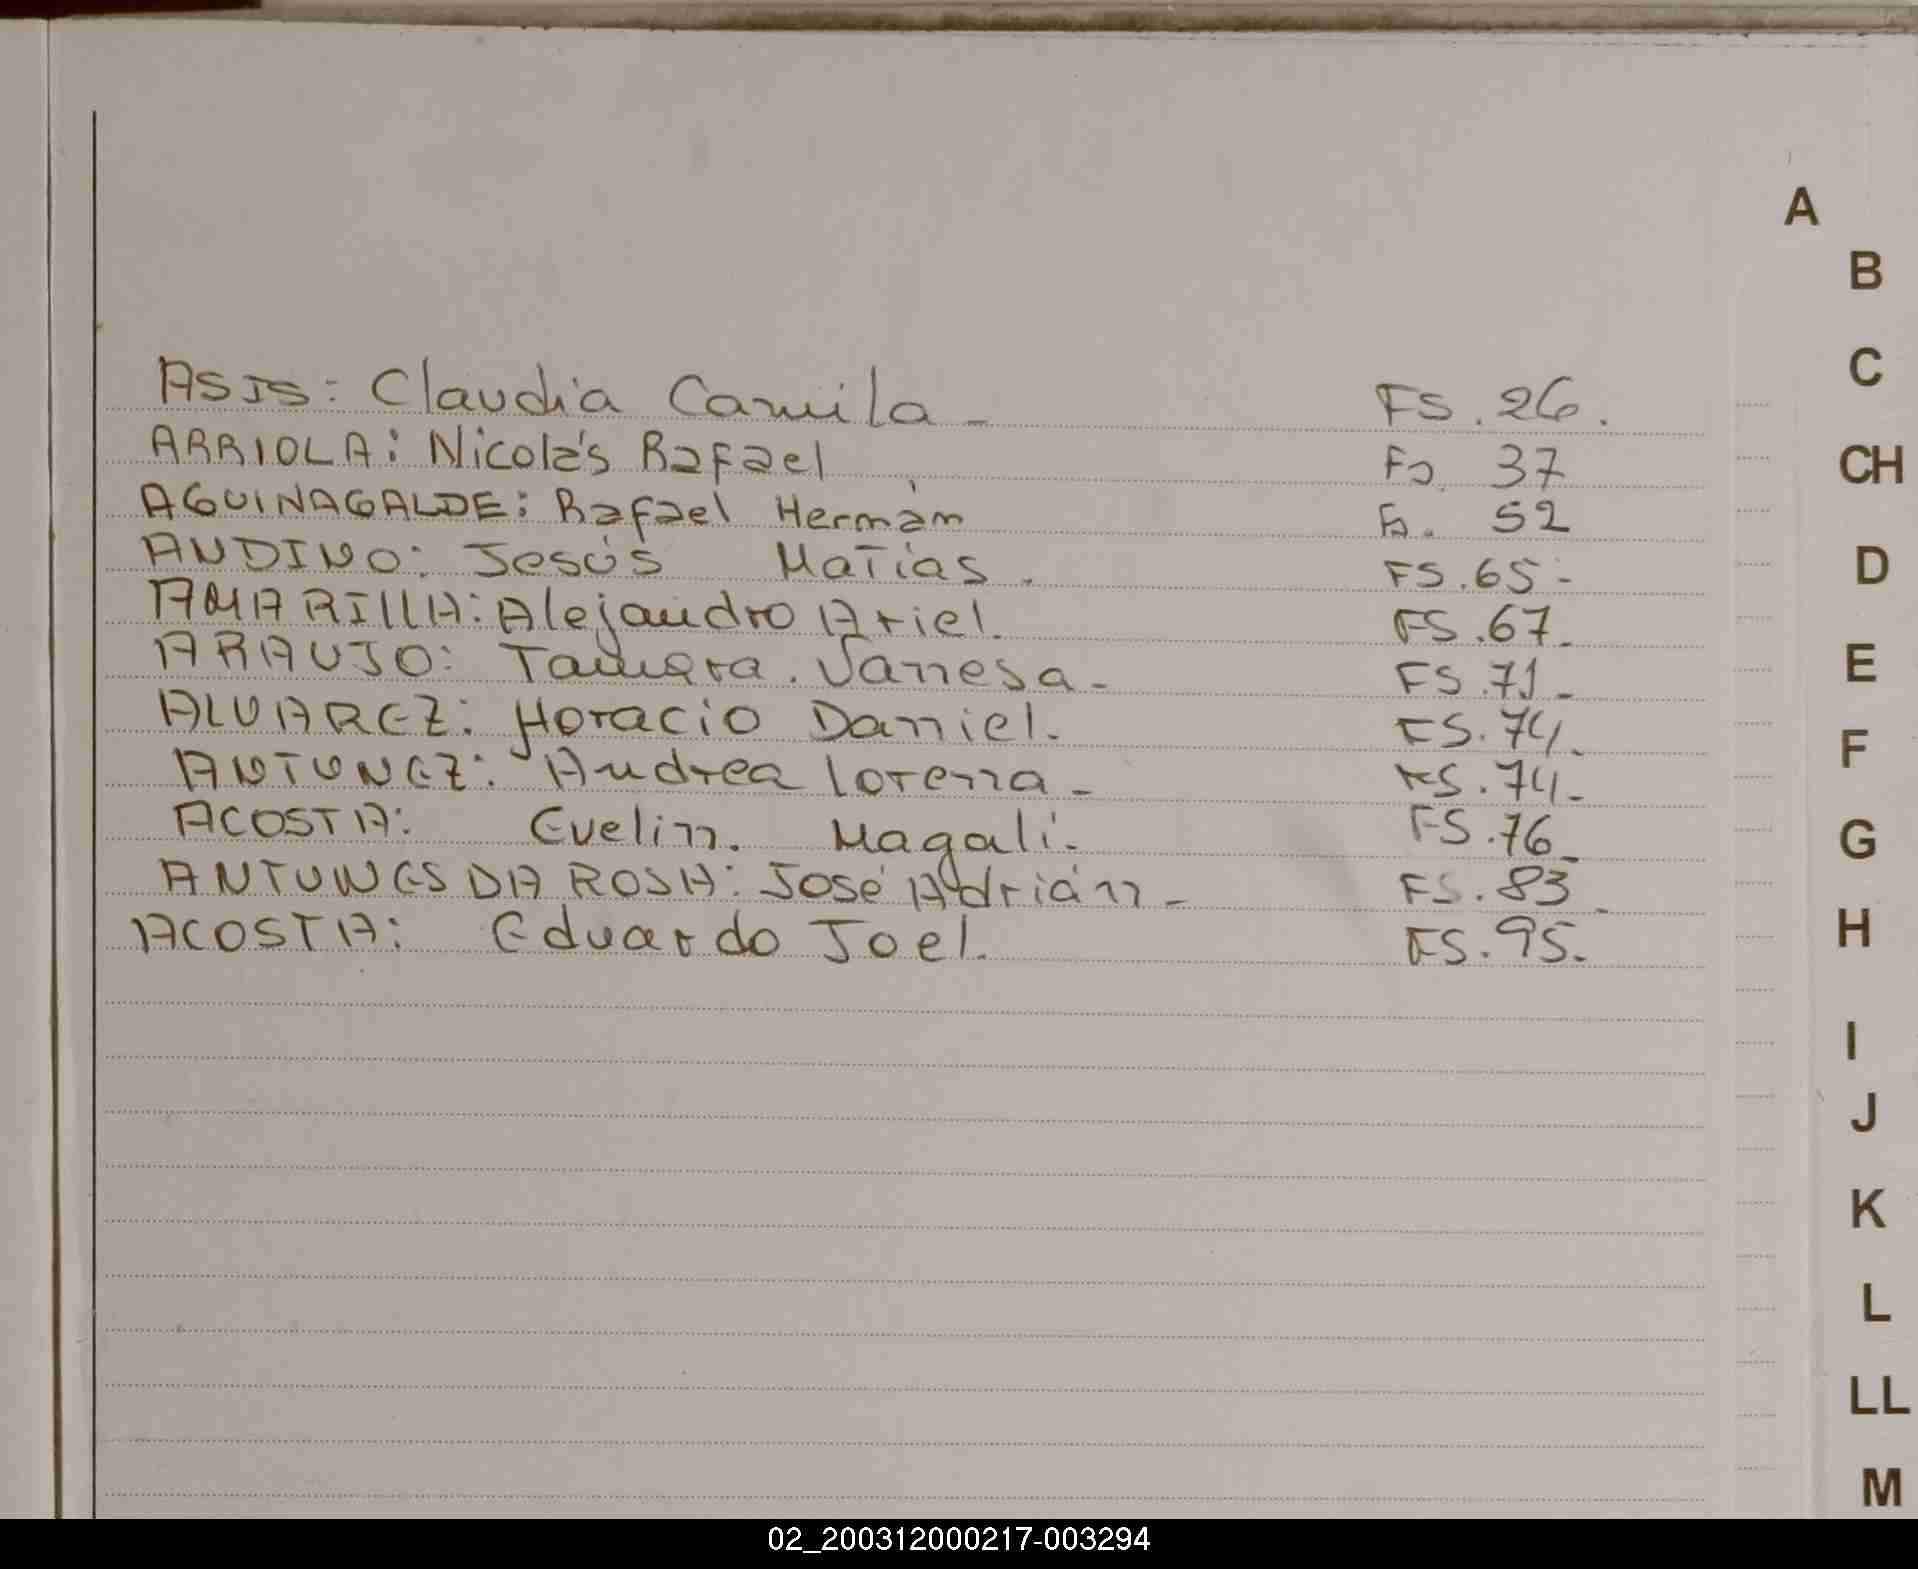 ASIS: Claudia Camila - FS. 26.
ARRIOLA: Nicolás Rafael Fs. 37
AGUINAGALDE: Rafael Hermán Fs. 52
ANDINO: Jesús Matías. FS. 65-
AMARILLA: Alejandro Ariel. FS. 67-
ARAUJO: Tamara. Vanesa- FS. 71-
ALVAREZ: Horacio Daniel. FS. 74-
ANTUNEZ: Andrea Lorena- FS. 74-
ACOSTA: Evelin. Magalí- FS. 76-
ANTUNES DA ROSA: José Adrián- FS. 83-
ACOSTA: Eduardo Joel. FS. 95-
A
B
C
CH
D
E
F
G
H
I
J
K
L
LL
M
02_200312000217-003294